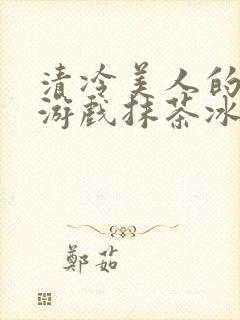 清冷美人的
游戏抹茶冰
鄭茹